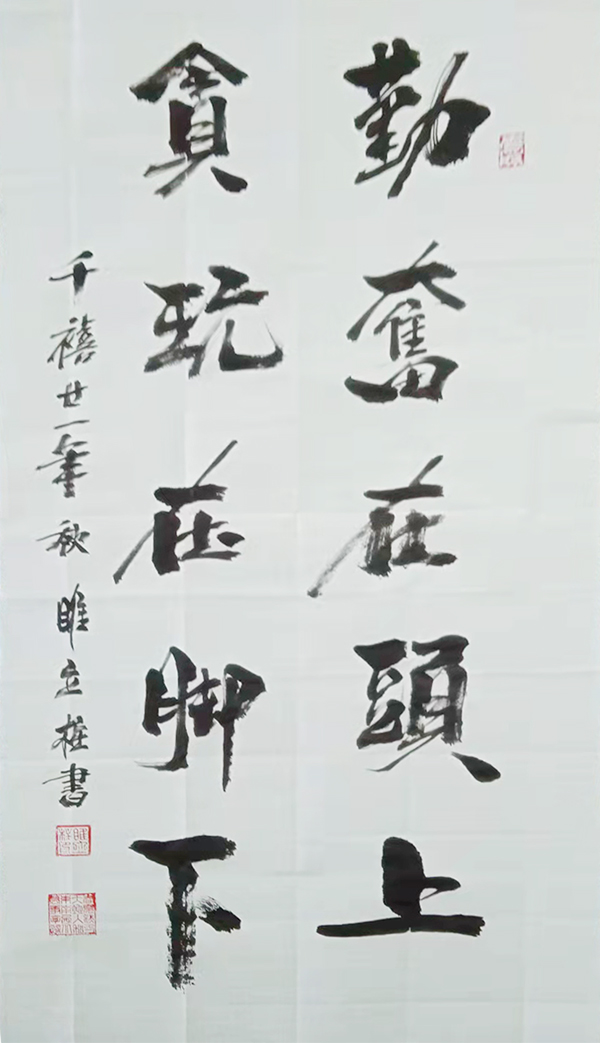 勤奮在頭上
貪玩在脚下
千禧廿一年秋睢立雄書